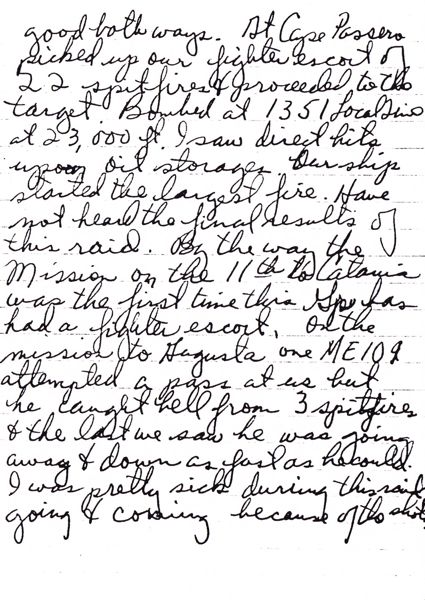 good both ways. At Cape Passero
picked up our fighter escort of
22 spitfires & proceeded to the
target. Bombed at 1351 local time
at 23,000 ft. I saw direct hits
upon oil storages. Our ship
started the largest fire. Have
not heard the final results of
this raid. By the way the
Mission on the 11th to Catania
was the first time this Gp has
had a fighter escort. On the
mission to Augusta one ME109
attempted a pass at us but
he caught hell from 3 spitfires
& the last we saw he was going
away & down as fast as he could.
I was pretty sick during this raid
going & coming because of the shots